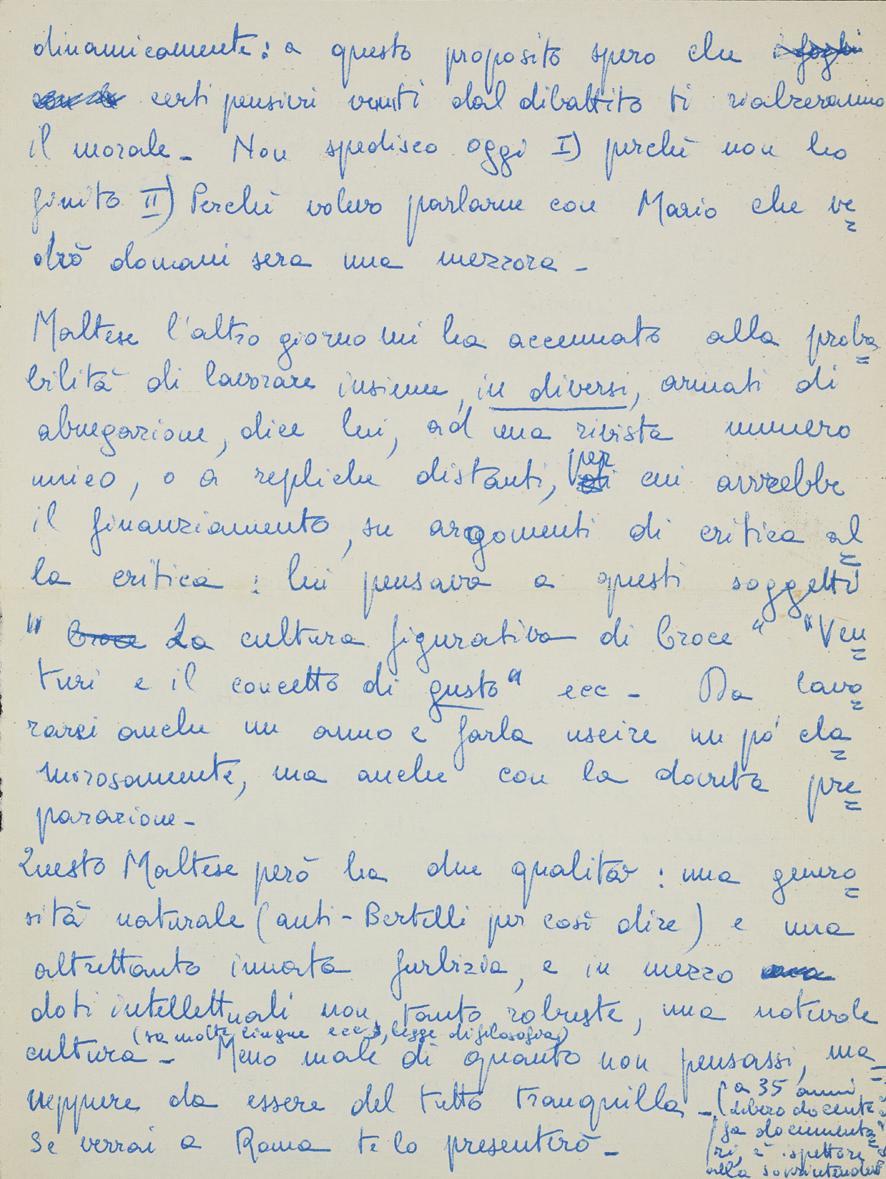 dinamicamente: a questo proposito spero che i fogli
certi pensieri venuti dal dibattito ti rialzeranno
il morale - Non spedisco oggi I) perchè non ho
finito II) Perchè volevo parlarne con Mario che ve=
drò domani sera una mezzora -
Maltese l'altro giorno mi ha accennato alla proba=
bilità di lavorare insieme, in diversi, armati di
abnegazione, dice lui, ad una rivista numero
unico, o a repliche distanti, per cui avrebbe
il finanziamento, su argomenti di critica al=
la critica: lui pensava a questi soggetti
" Croce La cultura figurativa di Croce" "Ven=
turi e il concetto di gusto" ecc - Da lavo=
rarsi anche un anno e farla uscire un pò cla=
morosamente, ma anche con la dovuta pre=
parazione -
Questo Maltese però ha due qualità: una genero=
sità naturale (anti-Bertelli per così dire) e una
altrettanto innata furbizia, e in mezzo
doti intellettuali non tanto robuste, una naturale
(sa molte lingue ecc, legge di filosofia)
cultura - Meno male di quanto non pensassi, ma
neppure da essere del tutto tranquilla -
Se verrai a Roma te lo presenterò -
(a 35 anni
libero docente
fa documenta=
ri, è ispettore
alla soprintendenza